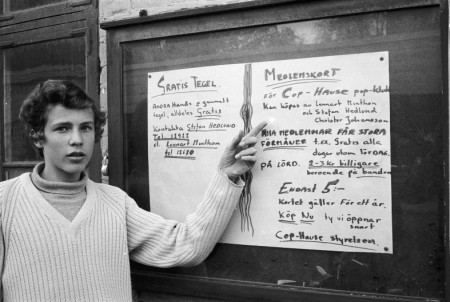 GRATIS TEGEL.
ANDRA HANDS & gammalt
tegel, alldeles Gratis
Kontakta Stefan HEDLUND
Tel 12922
el. Lennart Munthon
tel 12190
MEDLEMSKORT
FÖR COP-HAUSE pop-klubb
Kan köpas av Lennart Munthon
och Stefan Hedlund
Christer Johansson
ALLA MEDLEMMAR FÅR STORA
FÖRMÅNER t.ex. Gratis alla
dagar utom LÖRDAG.
PÅ LÖRD. 2-3 kr billigare
beroende på banden
ENDAST 5:-
Kortet gäller FÖR ETT ÅR.
KÖP NU ty vi öppnar
snart
COP-HAUSE styrelsen.